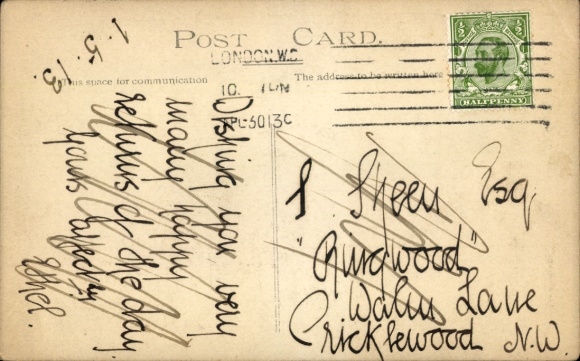 POST CARD.
This space for communication
The address to be written here
LONDON. W.C
10.
APL-3013C
HALFPENNY
1.5.13
Wishing you very
many happy
returns of the day
yours affectly
Ethel.
S. Skeen Esq
"Ringwood"
Walm Lane
Cricklewood N.W.